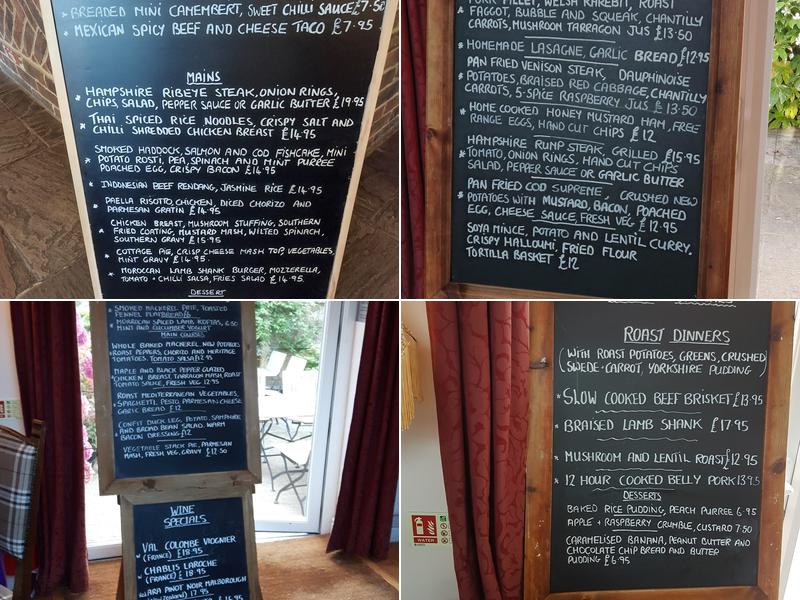 BREADED MINI CAMEMBERT, SWEET CHILLI SAUCE £7.50
* MEXICAN SPICY BEEF AND CHEESE TACO £7.95
MAINS
HAMPSHIRE RIBEYE STEAK, ONION RINGS,
* CHIPS, SALAD, PEPPER SAUCE OR GARLIC BUTTER £19.95
THAI SPICED RICE NOODLES, CRISPY SALT AND
* CHILLI SHREDDED CHICKEN BREAST £14.95
SMOKED HADDOCK, SALMON AND COD FISHCAKE, MINI
* POTATO ROSTI, PEA, SPINACH AND MINT PURREE
POACHED EGG, CRISPY BACON £14.95
* INDONESIAN BEEF RENDANG, JASMINE RICE £14.95
* PAELLA RISOTTO, CHICKEN, DICED CHORIZO AND
PARMESAN GRATIN £14.95
CHICKEN BREAST, MUSHROOM STUFFING, SOUTHERN
* FRIED COATING, MUSTARD MASH, WILTED SPINACH,
SOUTHERN GRAVY £15.95
* COTTAGE PIE, CRISP CHEESE MASH TOP, VEGETABLES,
MINT GRAVY £14.95
* MOROCCAN LAMB SHANK BURGER, MOZZERELLA,
TOMATO + CHILLI SALSA, FRIES SALAD £14.95
DESSERT
PORK FILLET, WELSH RAREBIT, ROAST
* FAGGOT, BUBBLE AND SQUEAK, CHANTILLY
CARROTS, MUSHROOM TARRAGON JUS £13.50
* HOMEMADE LASAGNE, GARLIC BREAD £12.95
PAN FRIED VENISON STEAK, DAUPHINOISE
* POTATOES, BRAISED RED CABBAGE, CHANTILLY
CARROTS, 5-SPICE RASPBERRY JUS £13.50
* HOME COOKED HONEY MUSTARD HAM, FREE
RANGE EGGS, HAND CUT CHIPS £12
HAMPSHIRE RUMP STEAK, GRILLED £15.95
* TOMATO, ONION RINGS, HAND CUT CHIPS
SALAD, PEPPER SAUCE OR GARLIC BUTTER
PAN FRIED COD SUPREME, CRUSHED NEW
* POTATOES WITH MUSTARD, BACON, POACHED
EGG, CHEESE SAUCE, FRESH VEG £12.95
SOYA MINCE, POTATO AND LENTIL CURRY,
CRISPY HALLOUMI, FRIED FLOUR
TORTILLA BASKET £12
* SMOKED MACKEREL PATE, TOASTED
FENNEL FLATBREAD
* MORROCAN SPICED LAMB KOFTAS, 6.50
MINT AND CUCUMBER YOGURT
MAIN COURSES
WHOLE BAKED MACKEREL, NEW POTATOES
* ROAST PEPPERS, CHORIZO AND HERITAGE
TOMATOES, TOMATO SALSA £12.95
MAPLE AND BLACK PEPPER GLAZED
* CHICKEN BREAST, TARRAGON MASH, ROAST
TOMATO SAUCE, FRESH VEG 12.95
ROAST MEDITERREAN VEGETABLES,
* SPAGHETTI, PESTO, PARMESAN CHEESE
GARLIC BREAD £12
CONFIT DUCK LEG, POTATO, SAMPHIRE
* AND BROAD BEAN SALAD, WARM
BACON DRESSING £12
VEGETABLE STACK PIE, PARMESAN
MASH, FRESH VEG, GRAVY £12.50
WINE
SPECIALS
VAL COLOMBE VIOGNIER
* (FRANCE) £18.95
* CHABLIS LAROCHE
(FRANCE) £ 18.95
ARA PINOT NOIR MALBOROUGH
(NEW ZEALAND) 17.95
ROAST DINNERS
(WITH ROAST POTATOES, GREENS, CRUSHED)
SWEDE + CARROT, YORKSHIRE PUDDING
* SLOW COOKED BEEF BRISKET £13.95
* BRAISED LAMB SHANK £17.95
* MUSHROOM AND LENTIL ROAST £12.95
* 12 HOUR COOKED BELLY PORK 13.95
DESSERTS
BAKED RICE PUDDING, PEACH PURREE 6.95
APPLE + RASPBERRY CRUMBLE, CUSTARD 7.50
CARAMELISED BANANA, PEANUT BUTTER AND
CHOCOLATE CHIP BREAD AND BUTTER
PUDDING £6.95
WATER